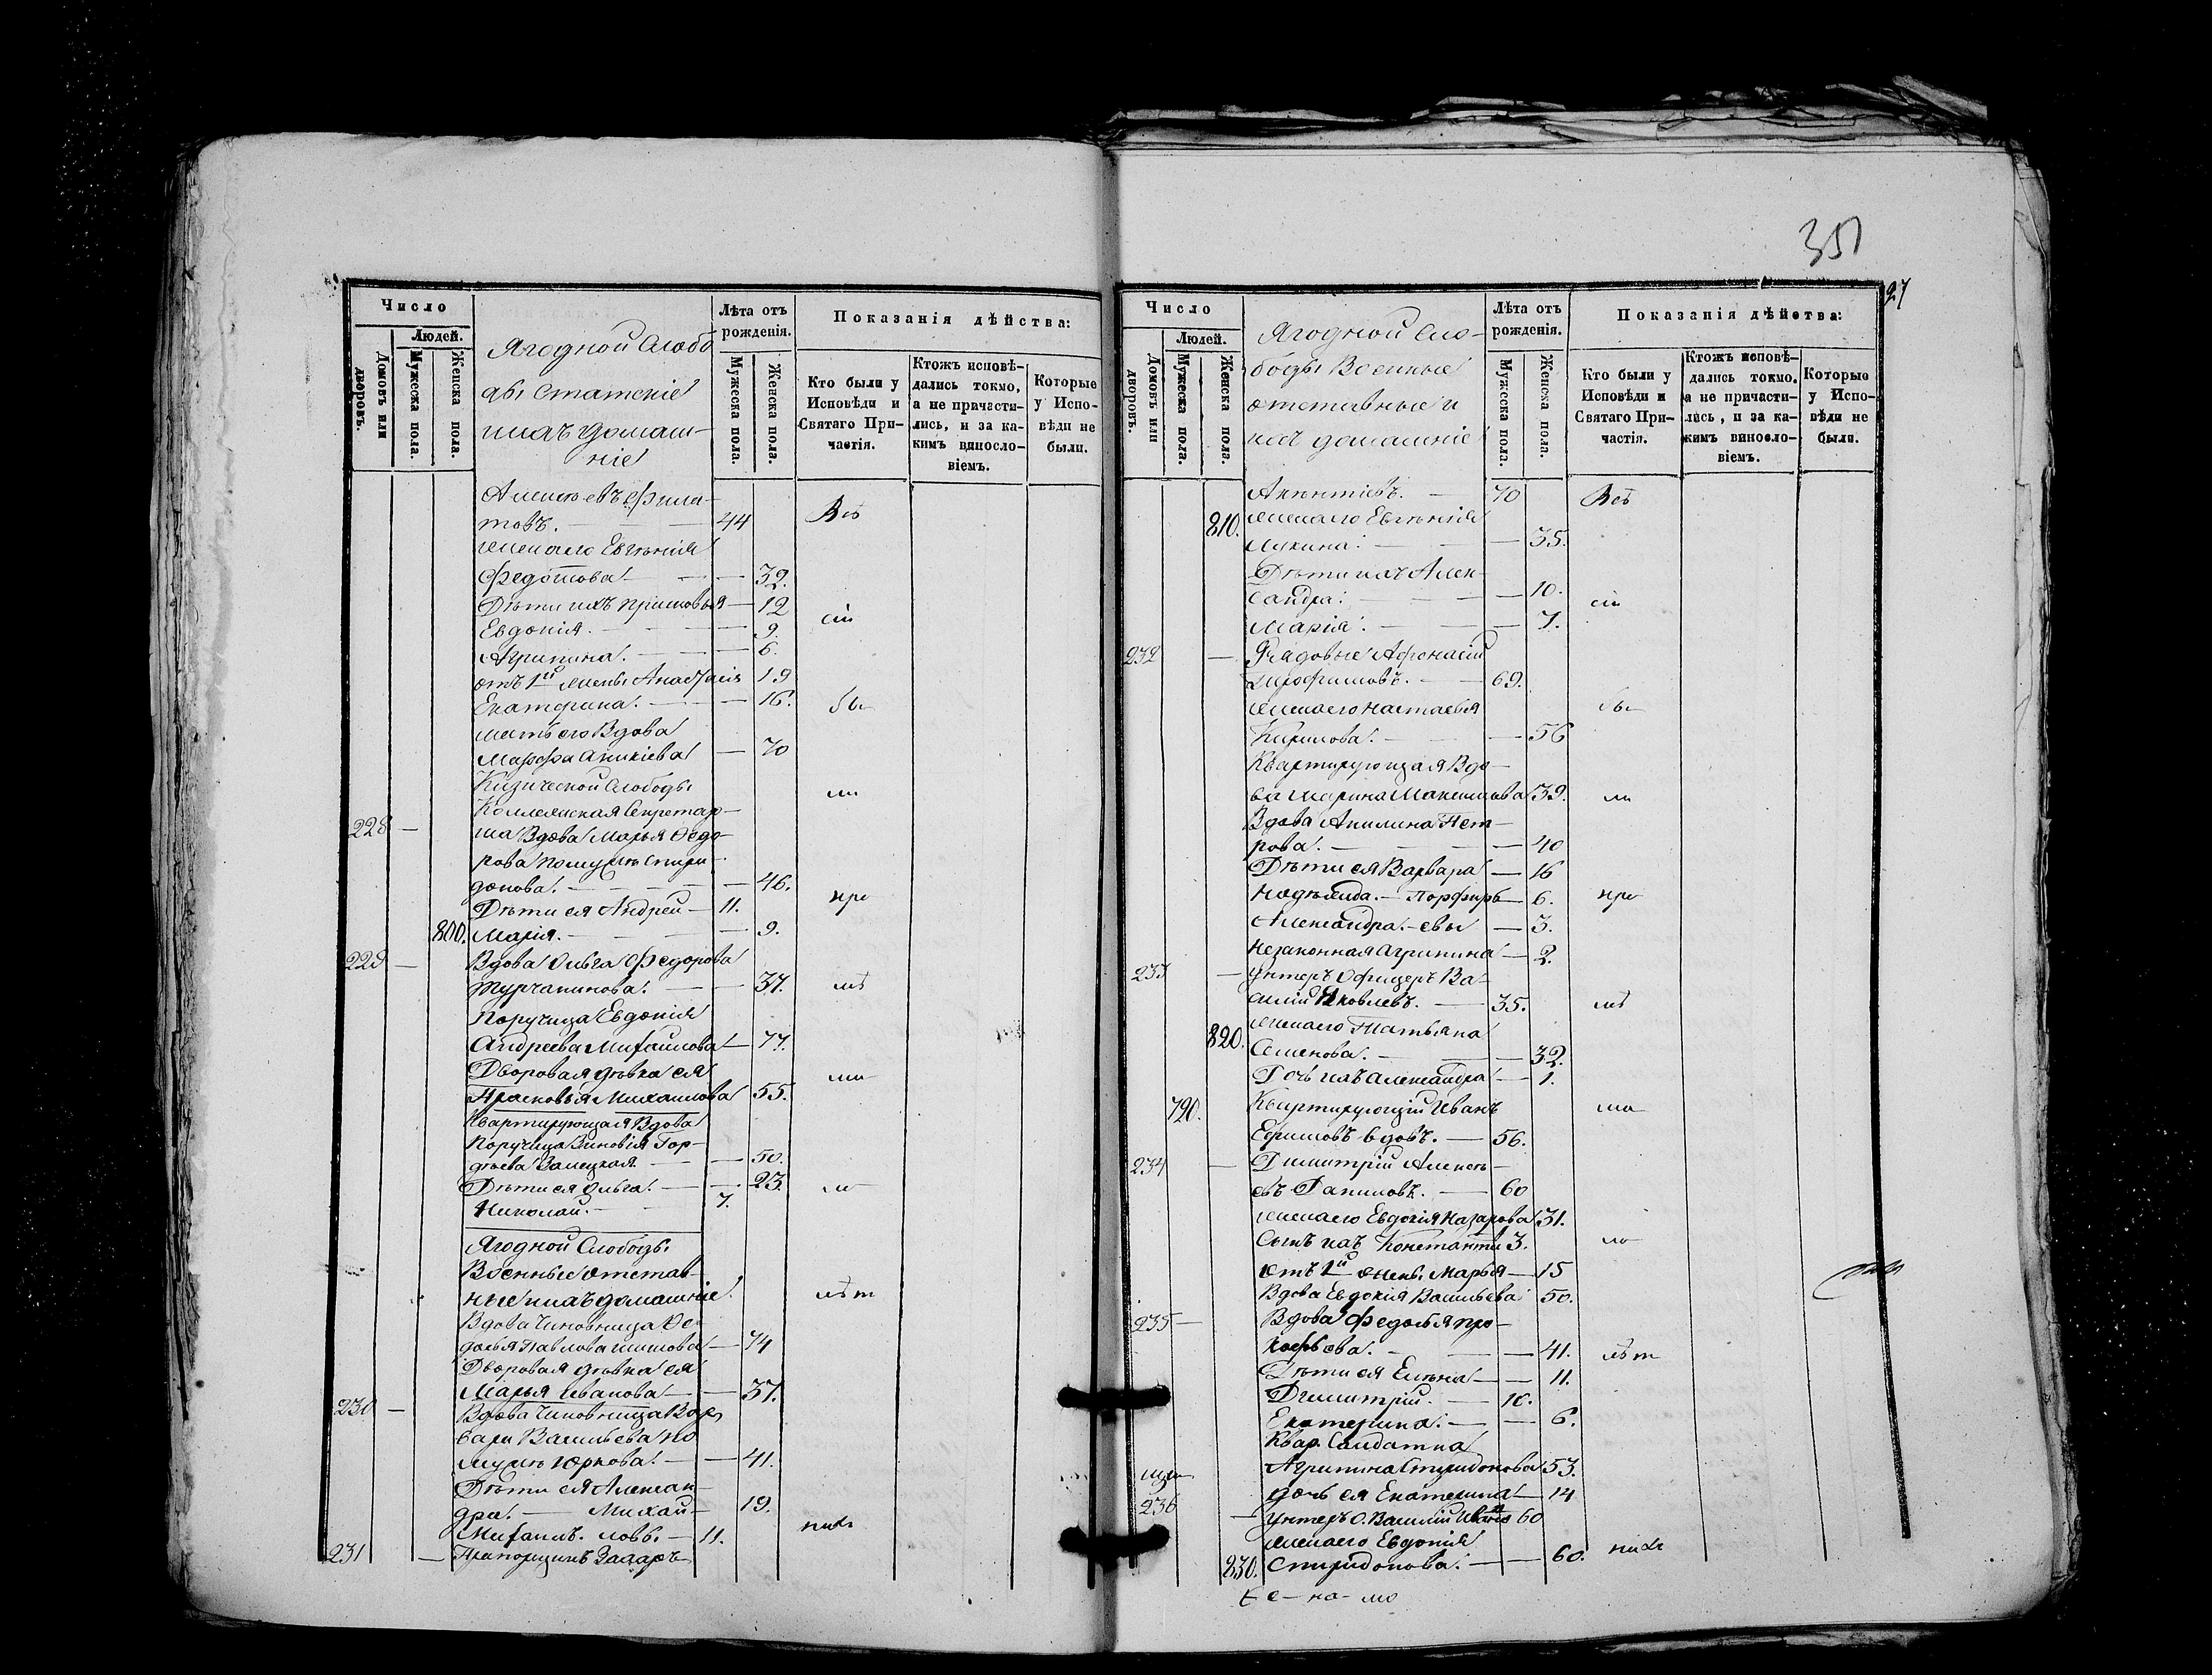 351
27
Число
Людей.
Домовъ или дворовъ.
Мужеска пола.
Женска пола.
Ягодной Слобо
ды Статскіе
и ихъ домаш-
ніе
Лѣта отъ рожденія.
Мужеска пола.
Женска пола.
Показанія дѣйства:
Кто были у Исповѣди и Святаго Причастія.
Ктожъ исповѣдались токмо, а не причастились, и за какимъ винословіемъ.
Которые у Исповѣди не были.
Алексѣевъ Фила-
товъ. — 44 Всѣ
жена его Евгенія
Федотова — 32.
Дѣти ихъ Прасковья — 12
Евдокія. — 9. сіи
Агрипина. — 6.
отъ 1й жены Анастасія 19
Екатерина. — 16. бы
мать его Вдова
Марфа Аникіева — 70
Кизической Слободы ли
Коллежская Секретар-
228 — ша Вдова Марья Ѳедо-
рова по мужѣ Спири-
донова. — 46.
Дѣти ея Андрей — 11. при
800. Марія. — 9.
229 — Вдова Ольга Федорова
Турчанинова. — 37.
Поручица Евдокія
Андреева Михаилова — 77.
Дворовая дѣвка ея
Прасковья Михаилова 55.
Квартирующая Вдова
Поручица Зиновія Гор-
дѣева — 50.
Дѣти ея Ольга. — 23.
Николай. — 7.
Ягодной Слободы
Военные отстав-
ные и ихъ домашніе.
Вдова Чиновница Ѳе-
досья Павлова — 74
Дворовая дѣвка ея
Марья Иванова — 37.
230 — Вдова Чиновница Вар
вара Васильева по
мужѣ Юркова. — 41.
Дѣти ея Алексан-
дра. — Михай- 19.
Михаилъ. ловы. — 11. нихъ
231 — Прапорщикъ Захаръ
Число
Людей.
Домовъ или дворовъ.
Мужеска пола.
Женска пола.
Ягодной Сло-
боды Военные
отставные и
ихъ домашніе
Лѣта отъ рожденія.
Мужеска пола.
Женска пола.
Показанія дѣйства:
Кто были у Исповѣди и Святаго Причастія.
Ктожъ исповѣдались токмо, а не причастились, и за какимъ винословіемъ.
Которые у Исповѣди не были.
— 70 Всѣ
810. жена его Евгенія
Лукина. — 35.
Дѣти ихъ Алек-
сандра. — 10. сіи
Марія. — 7.
232 — Рядовые Афонасій
— 69.
жена его Настасья бы
Кирилова. — 56
Квартирующая Вдо-
ва Марина Максимова 39. ли
Вдова Акилина Пет-
рова. — 40
Дѣти ея Варвара — 16
Надежда. — Порфирь — 6. при
Александра. — евы — 3.
Незаконная Агрипина — 2.
233 — Унтеръ Офицеръ Ва-
силій Яковлевъ. — 35.
жена его Татьяна
820. Семенова. — 32.
Дочь ихъ Александра — 1.
790. Квартирующій Иванъ
Ефимовъ вдовъ. — 56.
234 — Димитрій Алексѣ-
евъ Даниловъ. — 60
жена его Евдокія Назарова 31.
Сынъ ихъ Константи 3.
отъ 1й жены Марья — 15
Вдова Евдокія Васильева 50.
235 — Вдова Федосья Про-
кофьева. — 41.
Дѣти ея Елена — 11.
Димитрій. — 10.
Екатерина. — 6.
Квар. Салдатка
Агрипина Спиридонова 53.
дочь ея Екатерина — 14
236 — Унтеръ О. Василій Ивано 60
жена его Евдокія
830. Спиридонова. — 60. нихъ